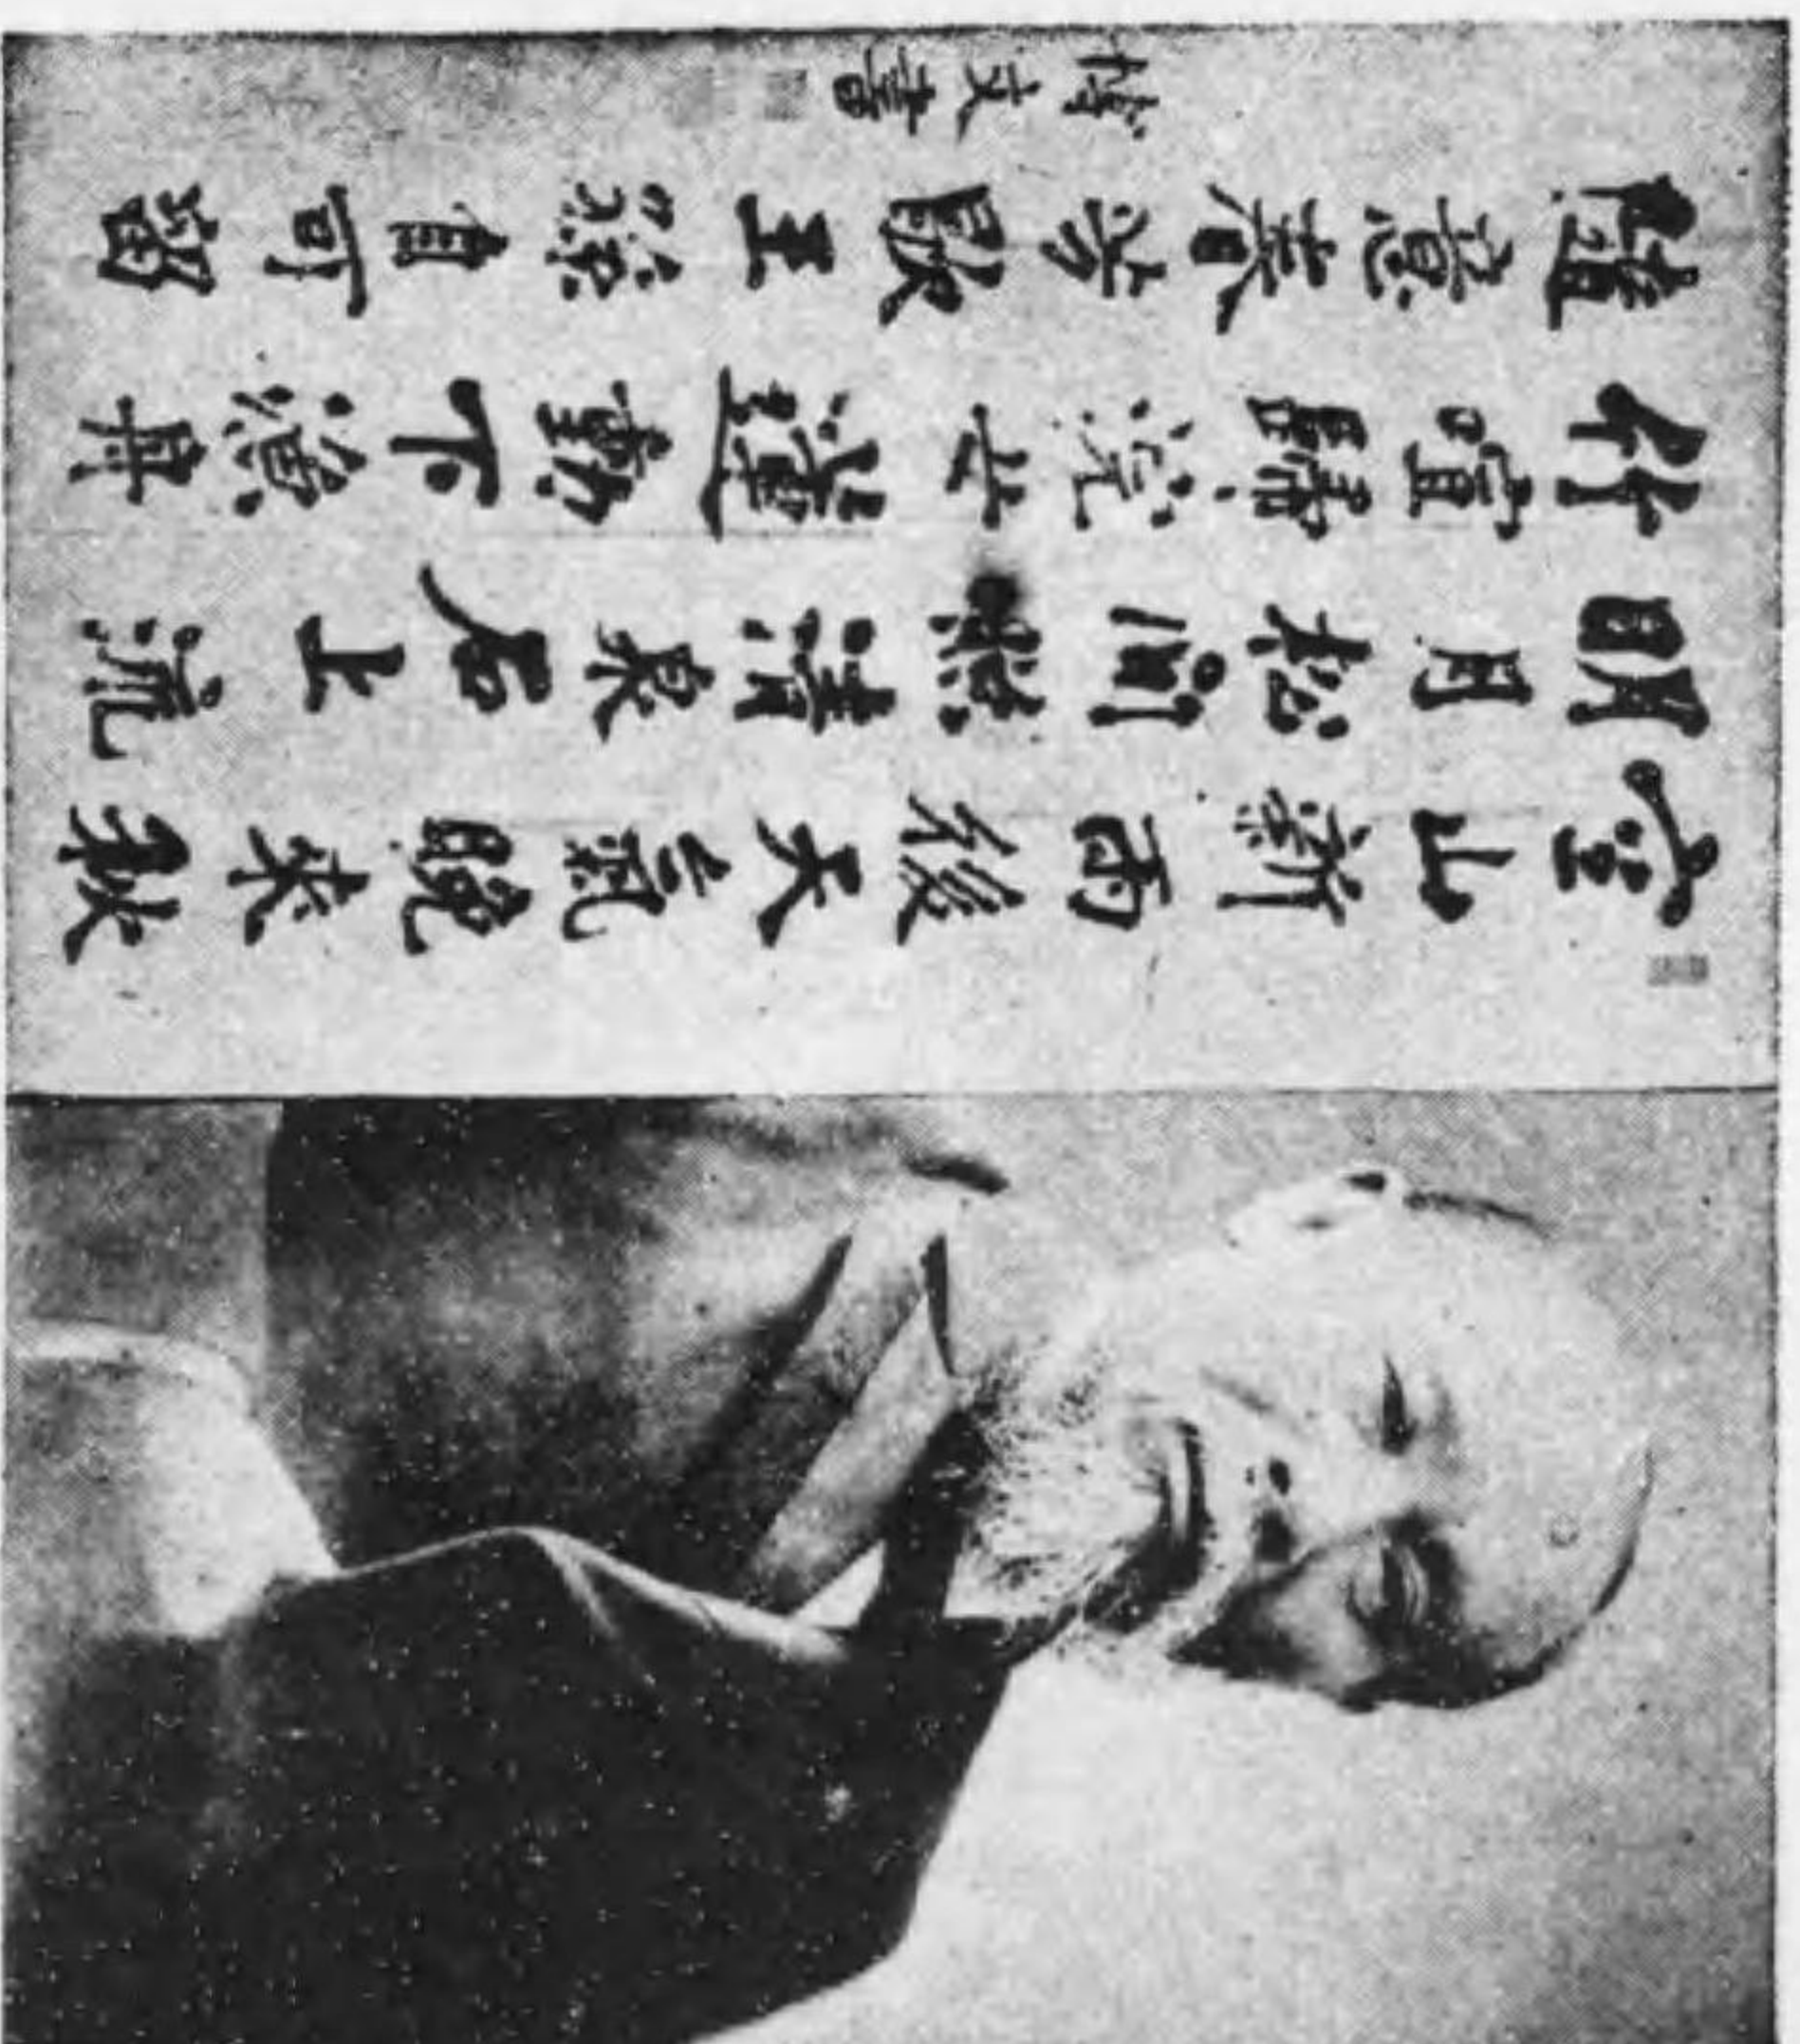 空山新雨後天氣晚來秋
明月松間照清泉石上流
竹喧歸浣女蓮動下漁舟
隨意春芳歇王孫自可留
博文書